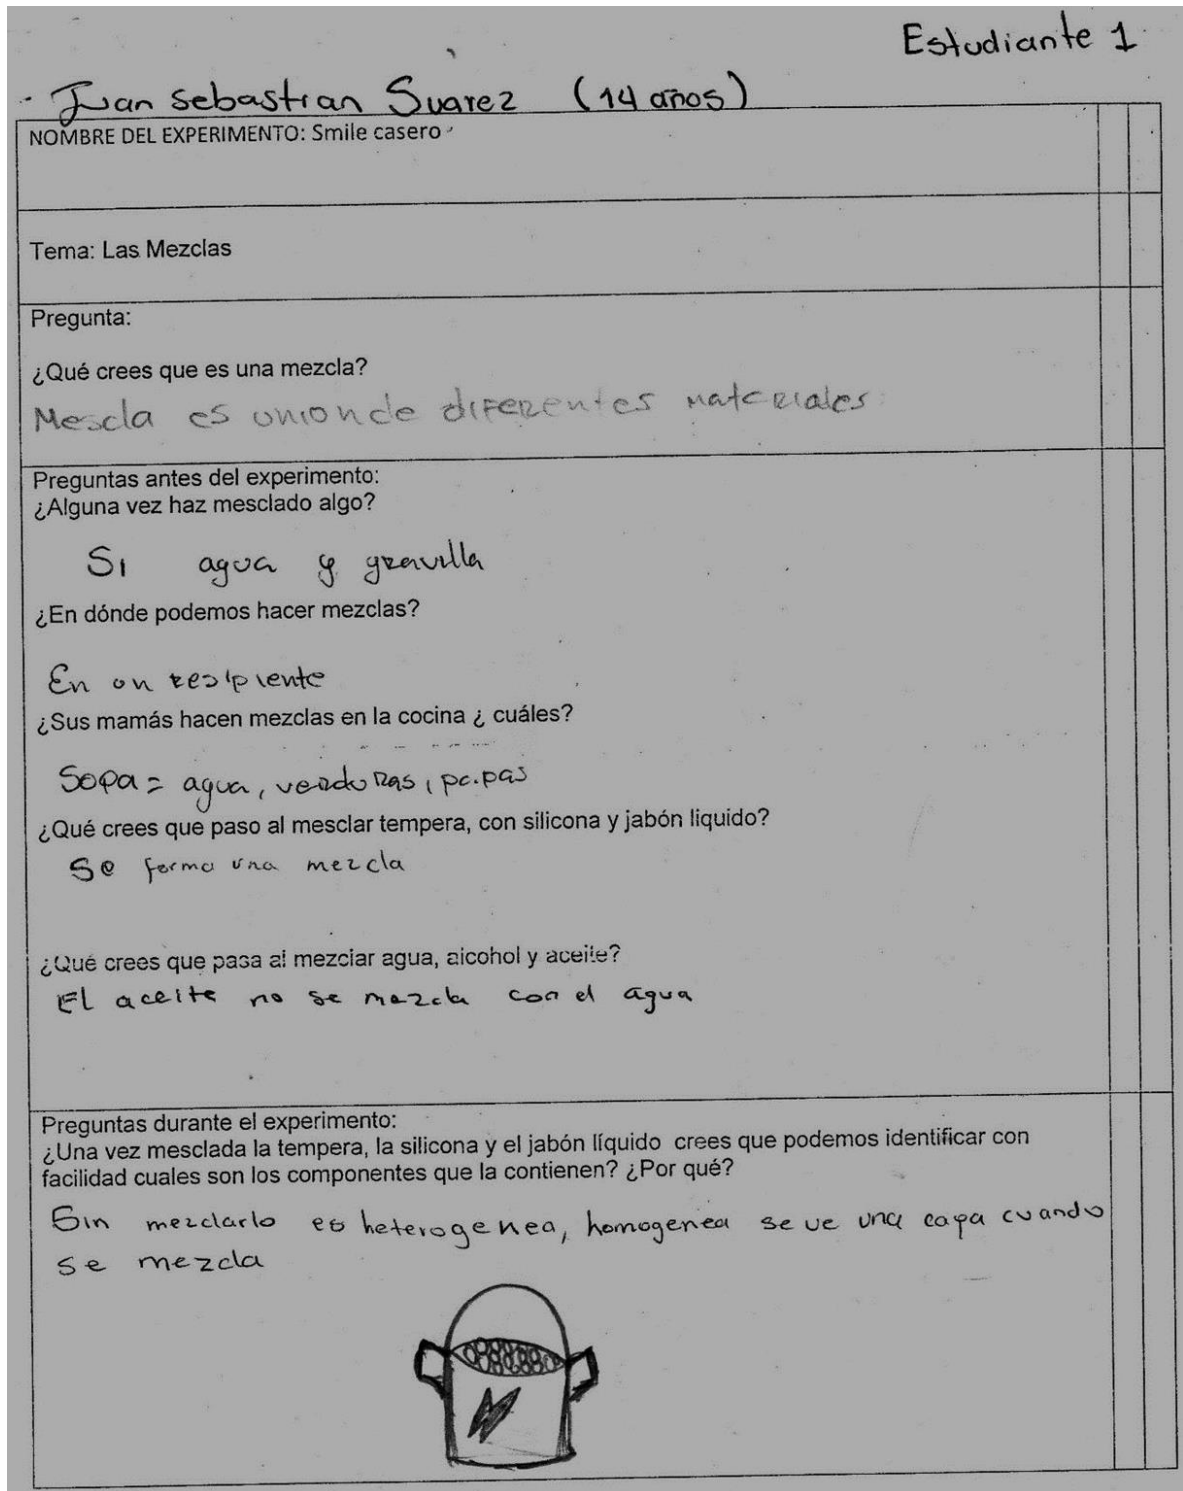 Estudiante 1
Juan Sebastian Suarez (14 años)
NOMBRE DEL EXPERIMENTO: Smile casero
Tema: Las Mezclas
Pregunta:
¿Qué crees que es una mezcla?
Mescla es union de diferentes materiales
Preguntas antes del experimento:
¿Alguna vez haz mesclado algo?
Si agua y gravilla
¿En dónde podemos hacer mezclas?
En un resipiente
¿Sus mamás hacen mezclas en la cocina ¿ cuáles?
Sopa = agua, verduras, papas
¿Qué crees que paso al mesclar tempera, con silicona y jabón liquido?
Se forma una mezcla
¿Qué crees que pasa al mezclar agua, alcohol y aceite?
El aceite no se mezcla con el agua
Preguntas durante el experimento:
¿Una vez mesclada la tempera, la silicona y el jabón líquido crees que podemos identificar con
facilidad cuales son los componentes que la contienen? ¿Por qué?
Sin mezclarlo es heterogenea, homogenea se ve una capa cuando
se mezcla